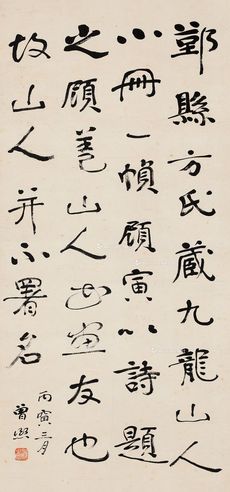 鄞縣方氏藏九龍山人
小冊一幀顧寅以詩題
之顧蓋山人書畫友也
故山人并不署名
丙寅三月
曾熙